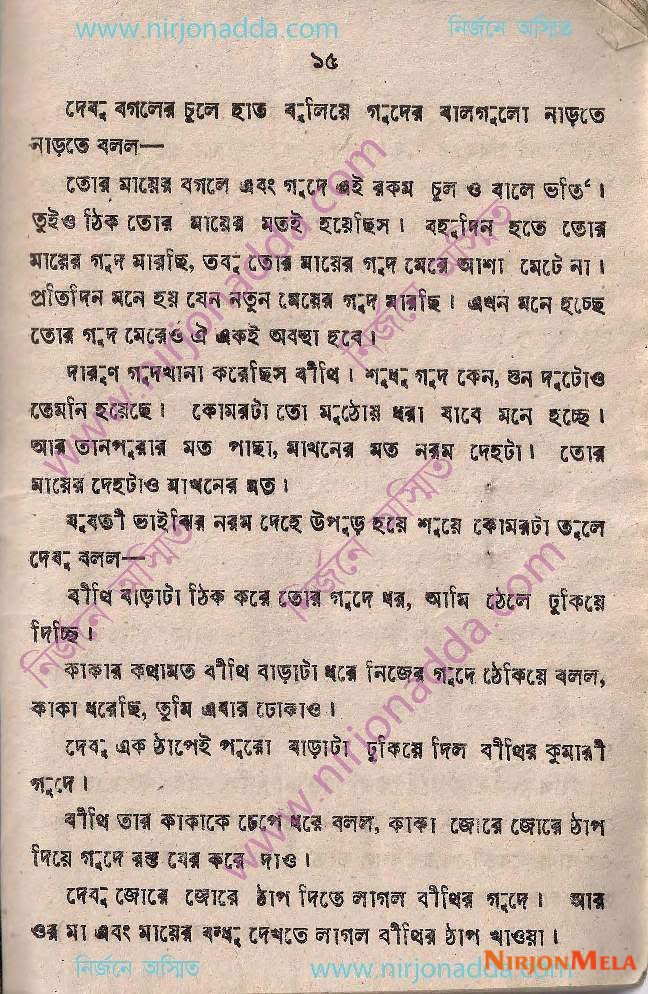 www.nirjonadda.com নির্জনে অস্মিত
১৫
দেবু বগলের চুলে হাত বুলিয়ে গুদের বালগুলো নাড়তে
নাড়তে বলল—
তোর মায়ের বগলে এবং গুদে এই রকম চুল ও বালে ভর্তি।
তুইও ঠিক তোর মায়ের মতই হয়েছিস। বহুদিন হতে তোর
মায়ের গুদ মারছি, তবু তোর মায়ের গুদ মেরে আশা মেটে না।
প্রতিদিন মনে হয় যেন নতুন মেয়ের গুদ মারছি। এখন মনে হচ্ছে
তোর গুদ মেরেও ঐ একই অবস্থা হবে।
দারুণ গুদখানা করেছিস বীথি। শুধু গুদ কেন, গুন দুটোও
তেমনি হয়েছে। কোমরটা তো মুঠোয় ধরা যাবে মনে হচ্ছে।
আর তানপুরার মত পাছা, মাখনের মত নরম দেহটা। তোর
মায়ের দেহটাও মাখনের মত।
যুবতী ভাইঝির নরম দেহে উপুড় হয়ে শুয়ে কোমরটা তুলে
দেবু বলল—
বীথি বাড়াটা ঠিক করে তোর গুদে ধর, আমি ঠেলে ঢুকিয়ে
দিচ্ছি।
কাকার কথামত বীথি বাড়াটা ধরে নিজের গুদে ঠেকিয়ে বলল,
কাকা ধরেছি, তুমি এবার ঢোকাও।
দেবু এক ঠাপেই পুরো বাড়াটা ঢুকিয়ে দিল বীথির কুমারী
গুদে।
বীথি তার কাকাকে চেপে ধরে বলল, কাকা জোরে জোরে ঠাপ
দিয়ে গুদে রক্ত বের করে দাও।
দেবু জোরে জোরে ঠাপ দিতে লাগল বীথির গুদে। আর
ওর মা এবং মায়ের বন্ধু দেখতে লাগল বীথির ঠাপ খাওয়া।
নির্জনে অস্মিত www.nirjonadda.com
NIRJONMELA
www.nirjonadda.com
নির্জনে অস্মিত
www.nirjonadda.com
নির্জনে অস্মিত
নির্জনে অস্মিত